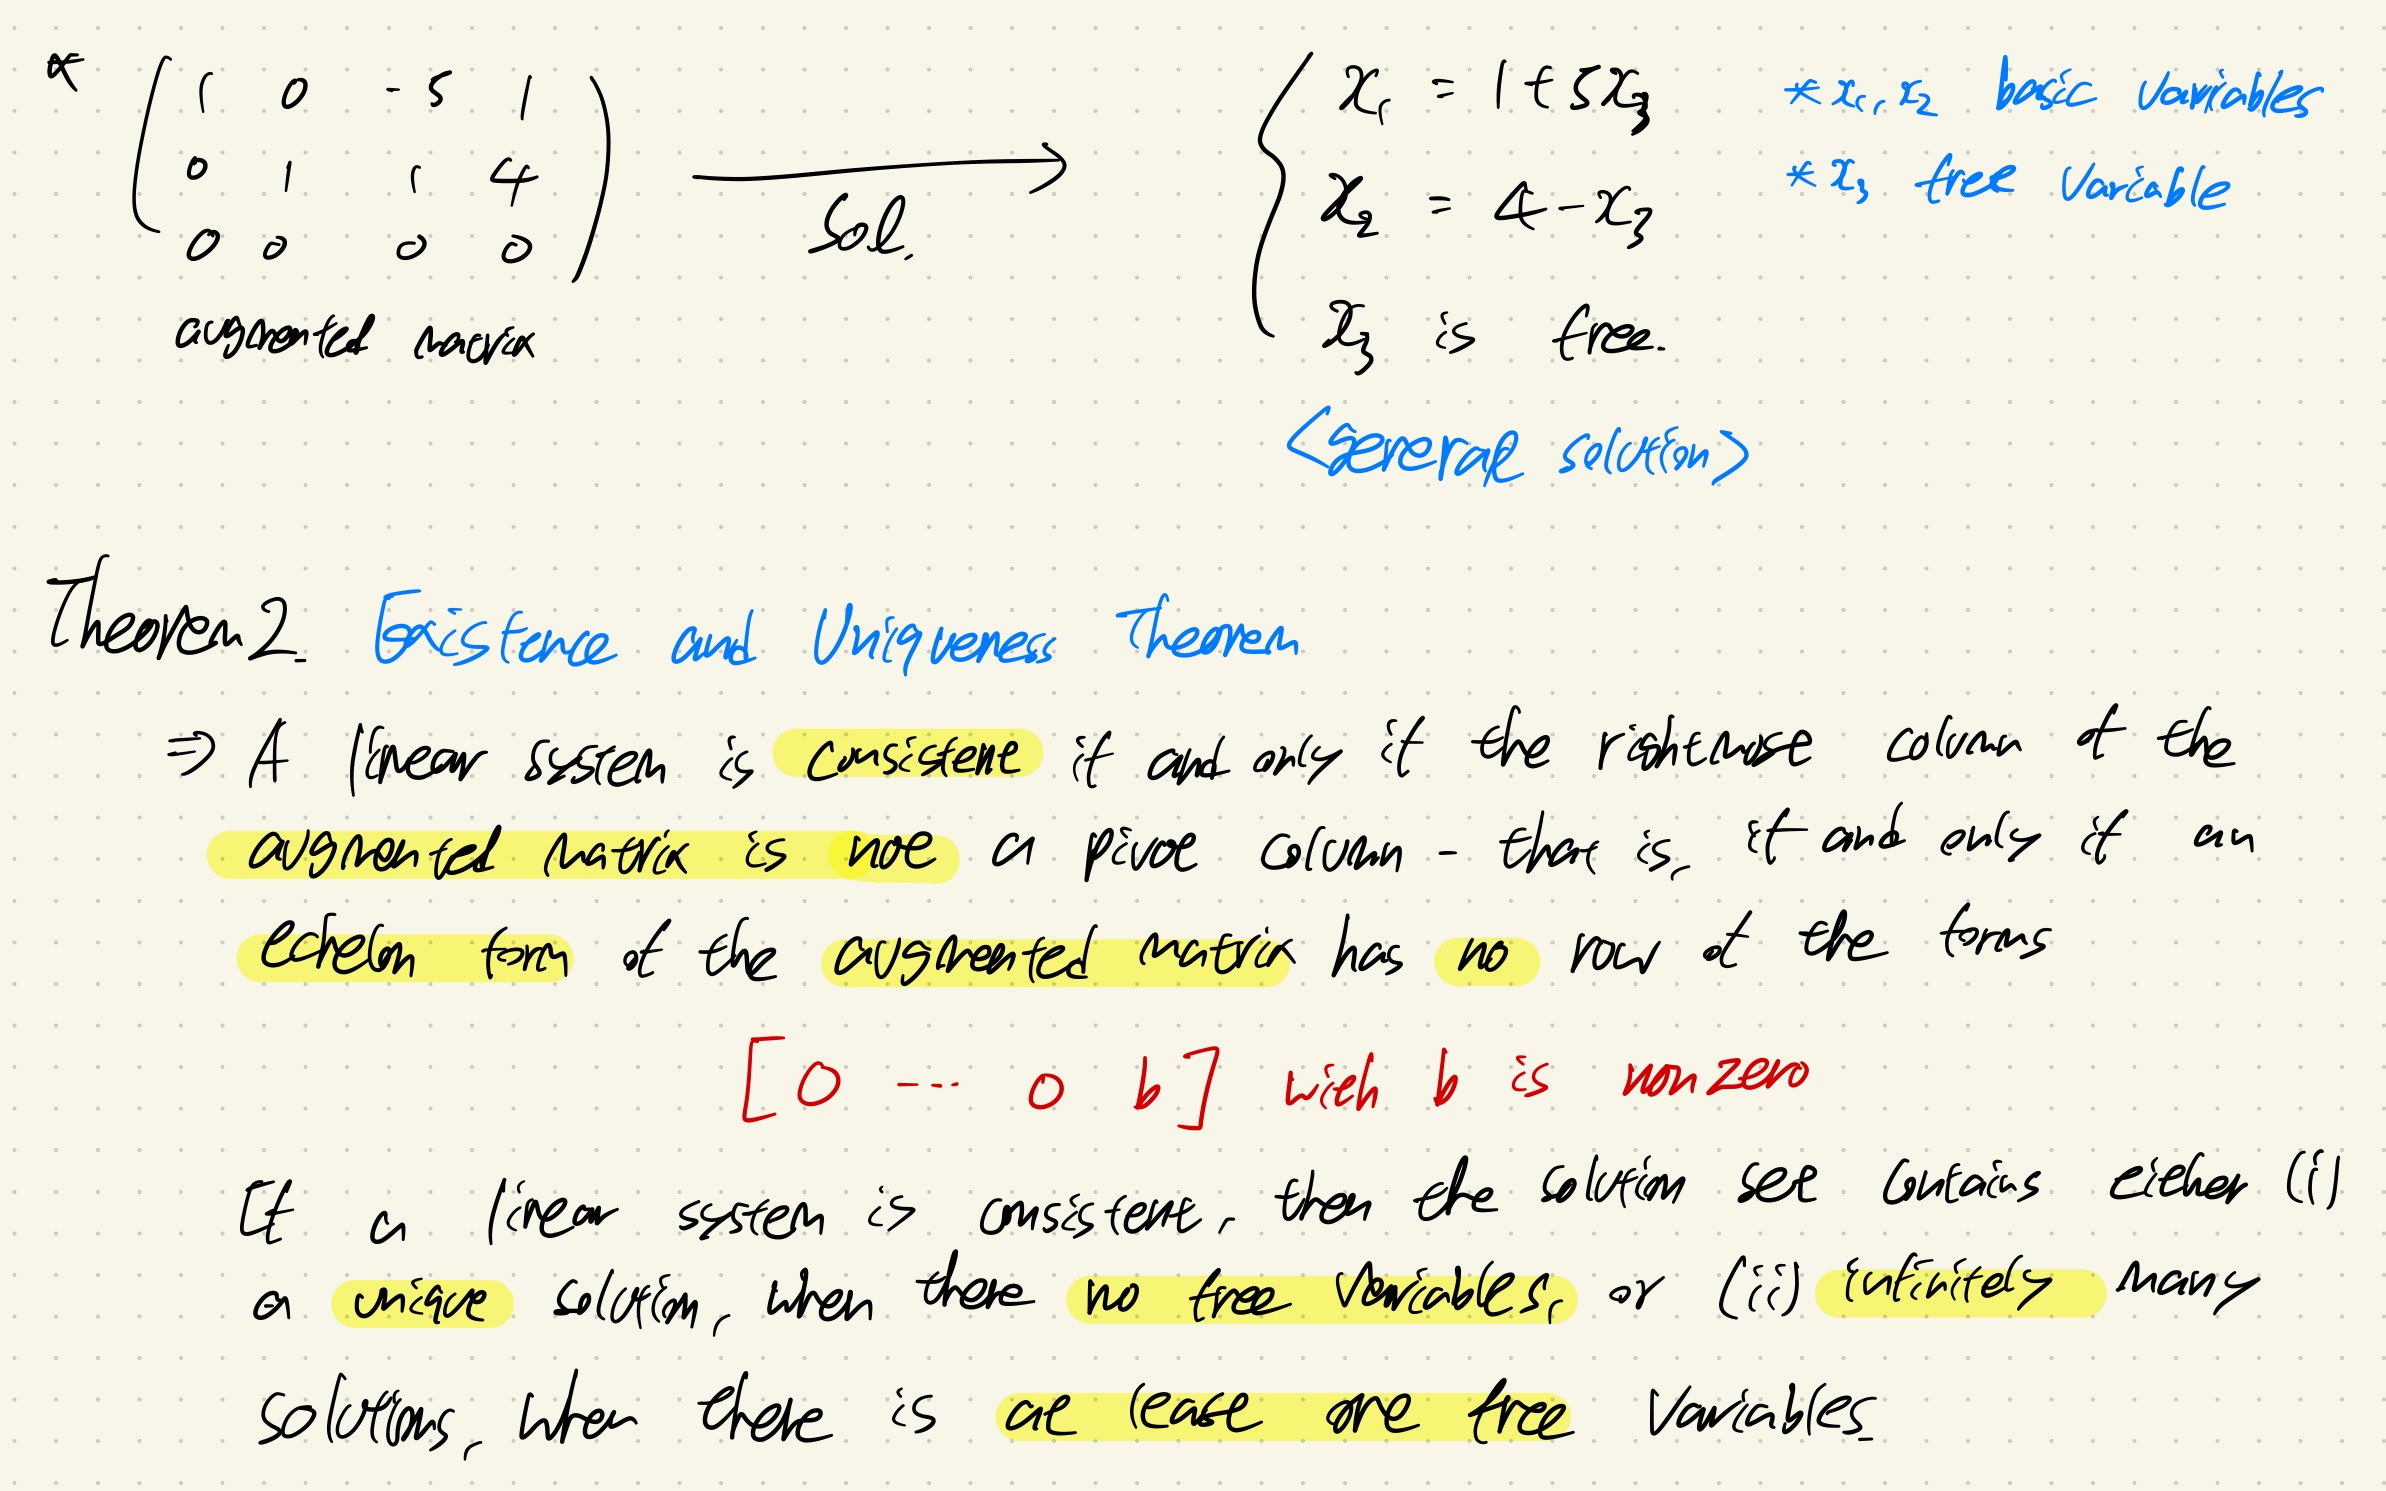 * ( 1 0 -5 1
0 1 1 4
0 0 0 0 )
augmented matrix
Sol.
{ x₁ = 1+5x₃
x₂ = 4-x₃
x₃ is free.
*x₁, x₂ basic variables
*x₃ free variable
<General solution>
Theorem 2. Existence and Uniqueness Theorem
⇒ A linear system is consistent if and only if the rightmost column of the
augmented matrix is not a pivot column - that is, if and only if an
echelon form of the augmented matrix has no row of the forms
[0 ... 0 b] with b is nonzero
If a linear system is consistent, then the solution set contains either (i)
a unique solution, when there no free variables, or (ii) infinitely many
solutions, when there is at least one free variables.